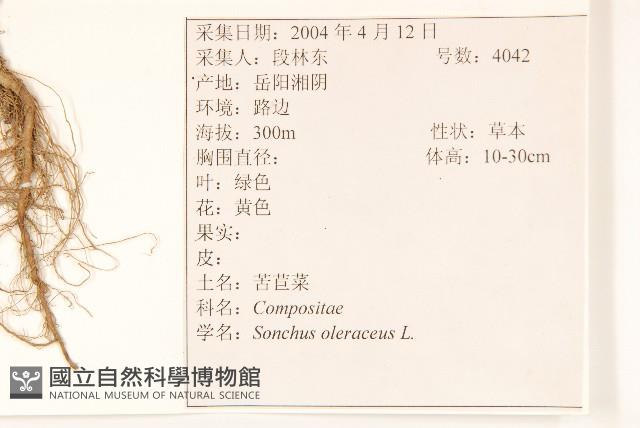 采集日期：2004 年 4 月 12 日
采集人：段林东 号数：4042
产地：岳阳湘阴
环境：路边
海拔：300m 性状：草本
胸围直径： 体高：10-30cm
叶：绿色
花：黄色
果实：
皮：
土名：苦苣菜
科名：Compositae
学名：Sonchus oleraceus L.
國立自然科學博物館
NATIONAL MUSEUM OF NATURAL SCIENCE